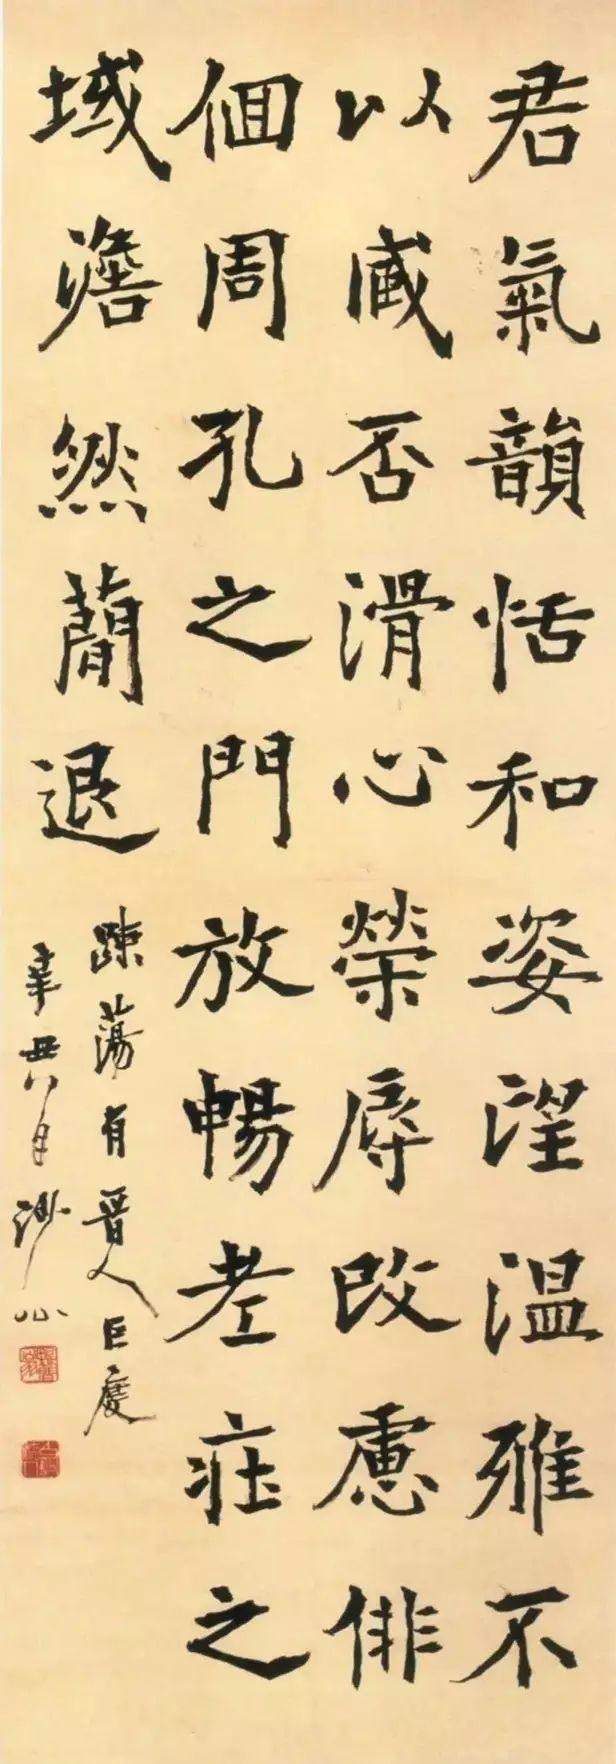 君氣韻恬和姿望温雅不
以臧否滑心榮辱改慮俳
佪周孔之門放暢老莊之
域澹然簡退
疎蕩有晉人巨度
辛丑八月